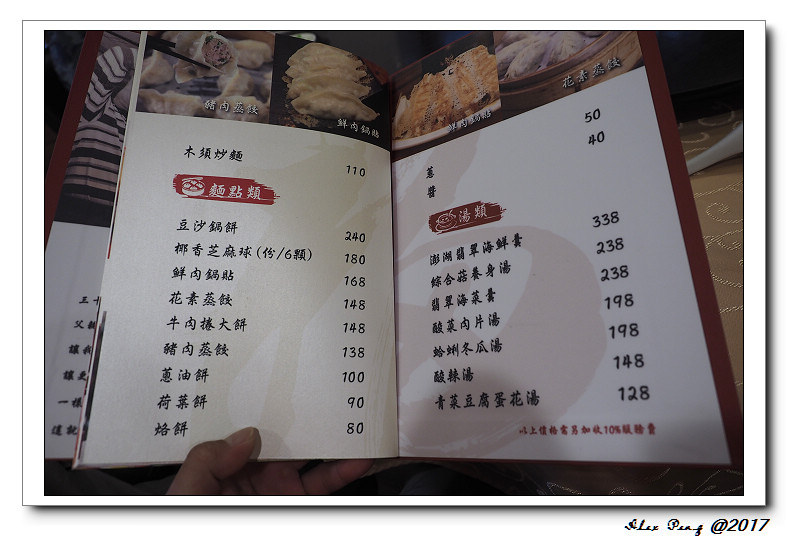 豬肉蒸餃
鮮肉鍋貼
木須炒麵 110
麵點類
豆沙鍋餅 240
椰香芝麻球(份/6顆) 180
鮮肉鍋貼 168
花素蒸餃 148
牛肉捲大餅 148
豬肉蒸餃 138
蔥油餅 100
荷葉餅 90
烙餅 80
三十
父親
一樣
這說
鮮肉鍋貼
花素蒸餃
蔥 50
醬 40
湯類
澎湖翡翠海鮮羹 338
綜合菇養身湯 238
翡翠海菜羹 238
酸菜肉片湯 198
蛤蜊冬瓜湯 198
酸辣湯 148
青菜豆腐蛋花湯 128
以上價格需另加收10%服務費
Alex Peng @2017